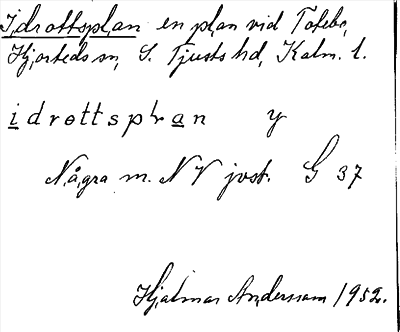 Idrottsplan en plan vid Totebo,
Hjorteds sn, S. Tjusts hd, Kalm. l.
idrottsplan y
Några m. NV jvst. G 37
Hjalmar Andersson 1952.